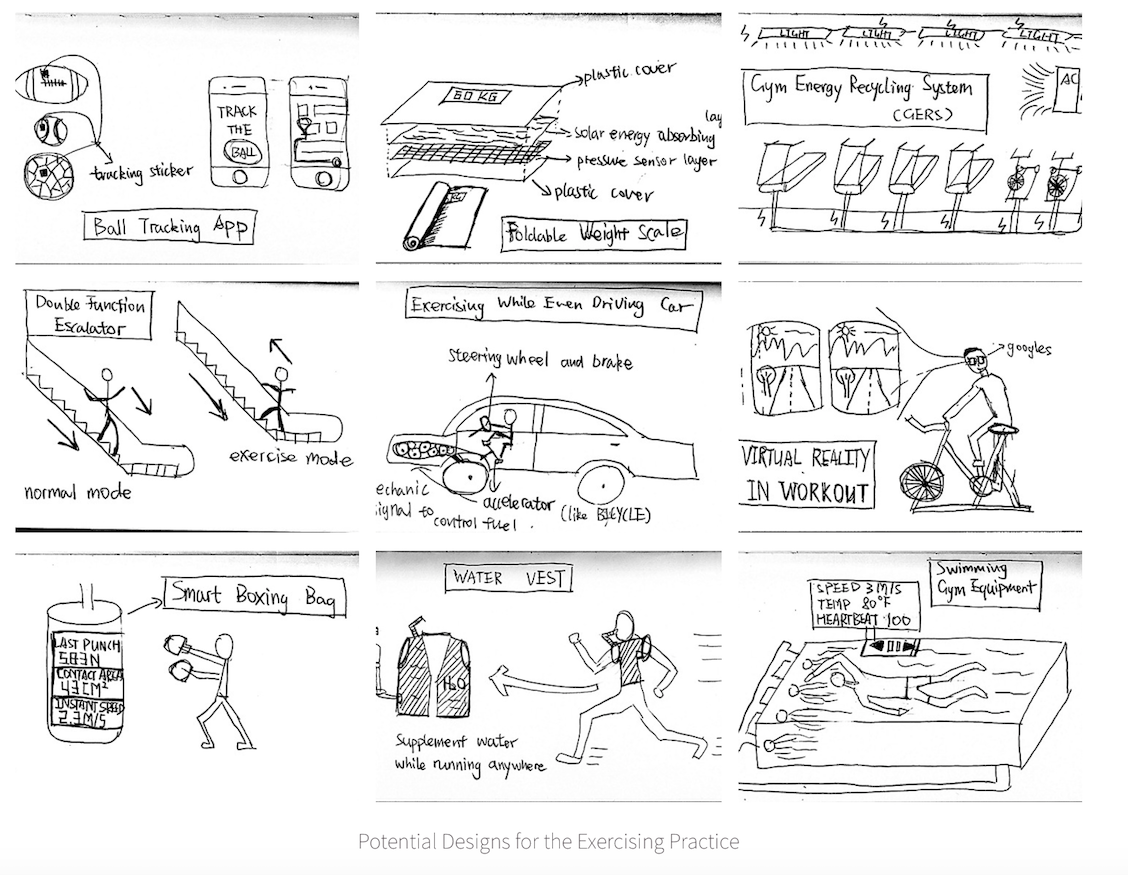 tracking sticker
TRACK
THE
BALL
Ball Tracking App
60 KG
plastic cover
lay
solar energy absorbing
pressure sensor layer
plastic cover
KG
Foldable Weight Scale
LIGHT LIGHT LIGHT LIGHT
Gym Energy Recycling System
(GERS)
AC
Double Function
Escalator
normal mode
exercise mode
Exercising While Even Driving Car
steering wheel and brake
echanic
ignal to
control fuel.
accelerator (like BICYCLE)
googles
VIRTUAL REALITY
IN WORKOUT
Smart Boxing Bag
LAST PUNCH
583N
CONTACT AREA
43CM²
INSTANT SPEED
2.3M/S
WATER VEST
H₂O
Supplement water
while running anywhere
Swimming
Gym Equipment
SPEED 3M/S
TEMP 80°F
HEARTBEAT 100
Potential Designs for the Exercising Practice